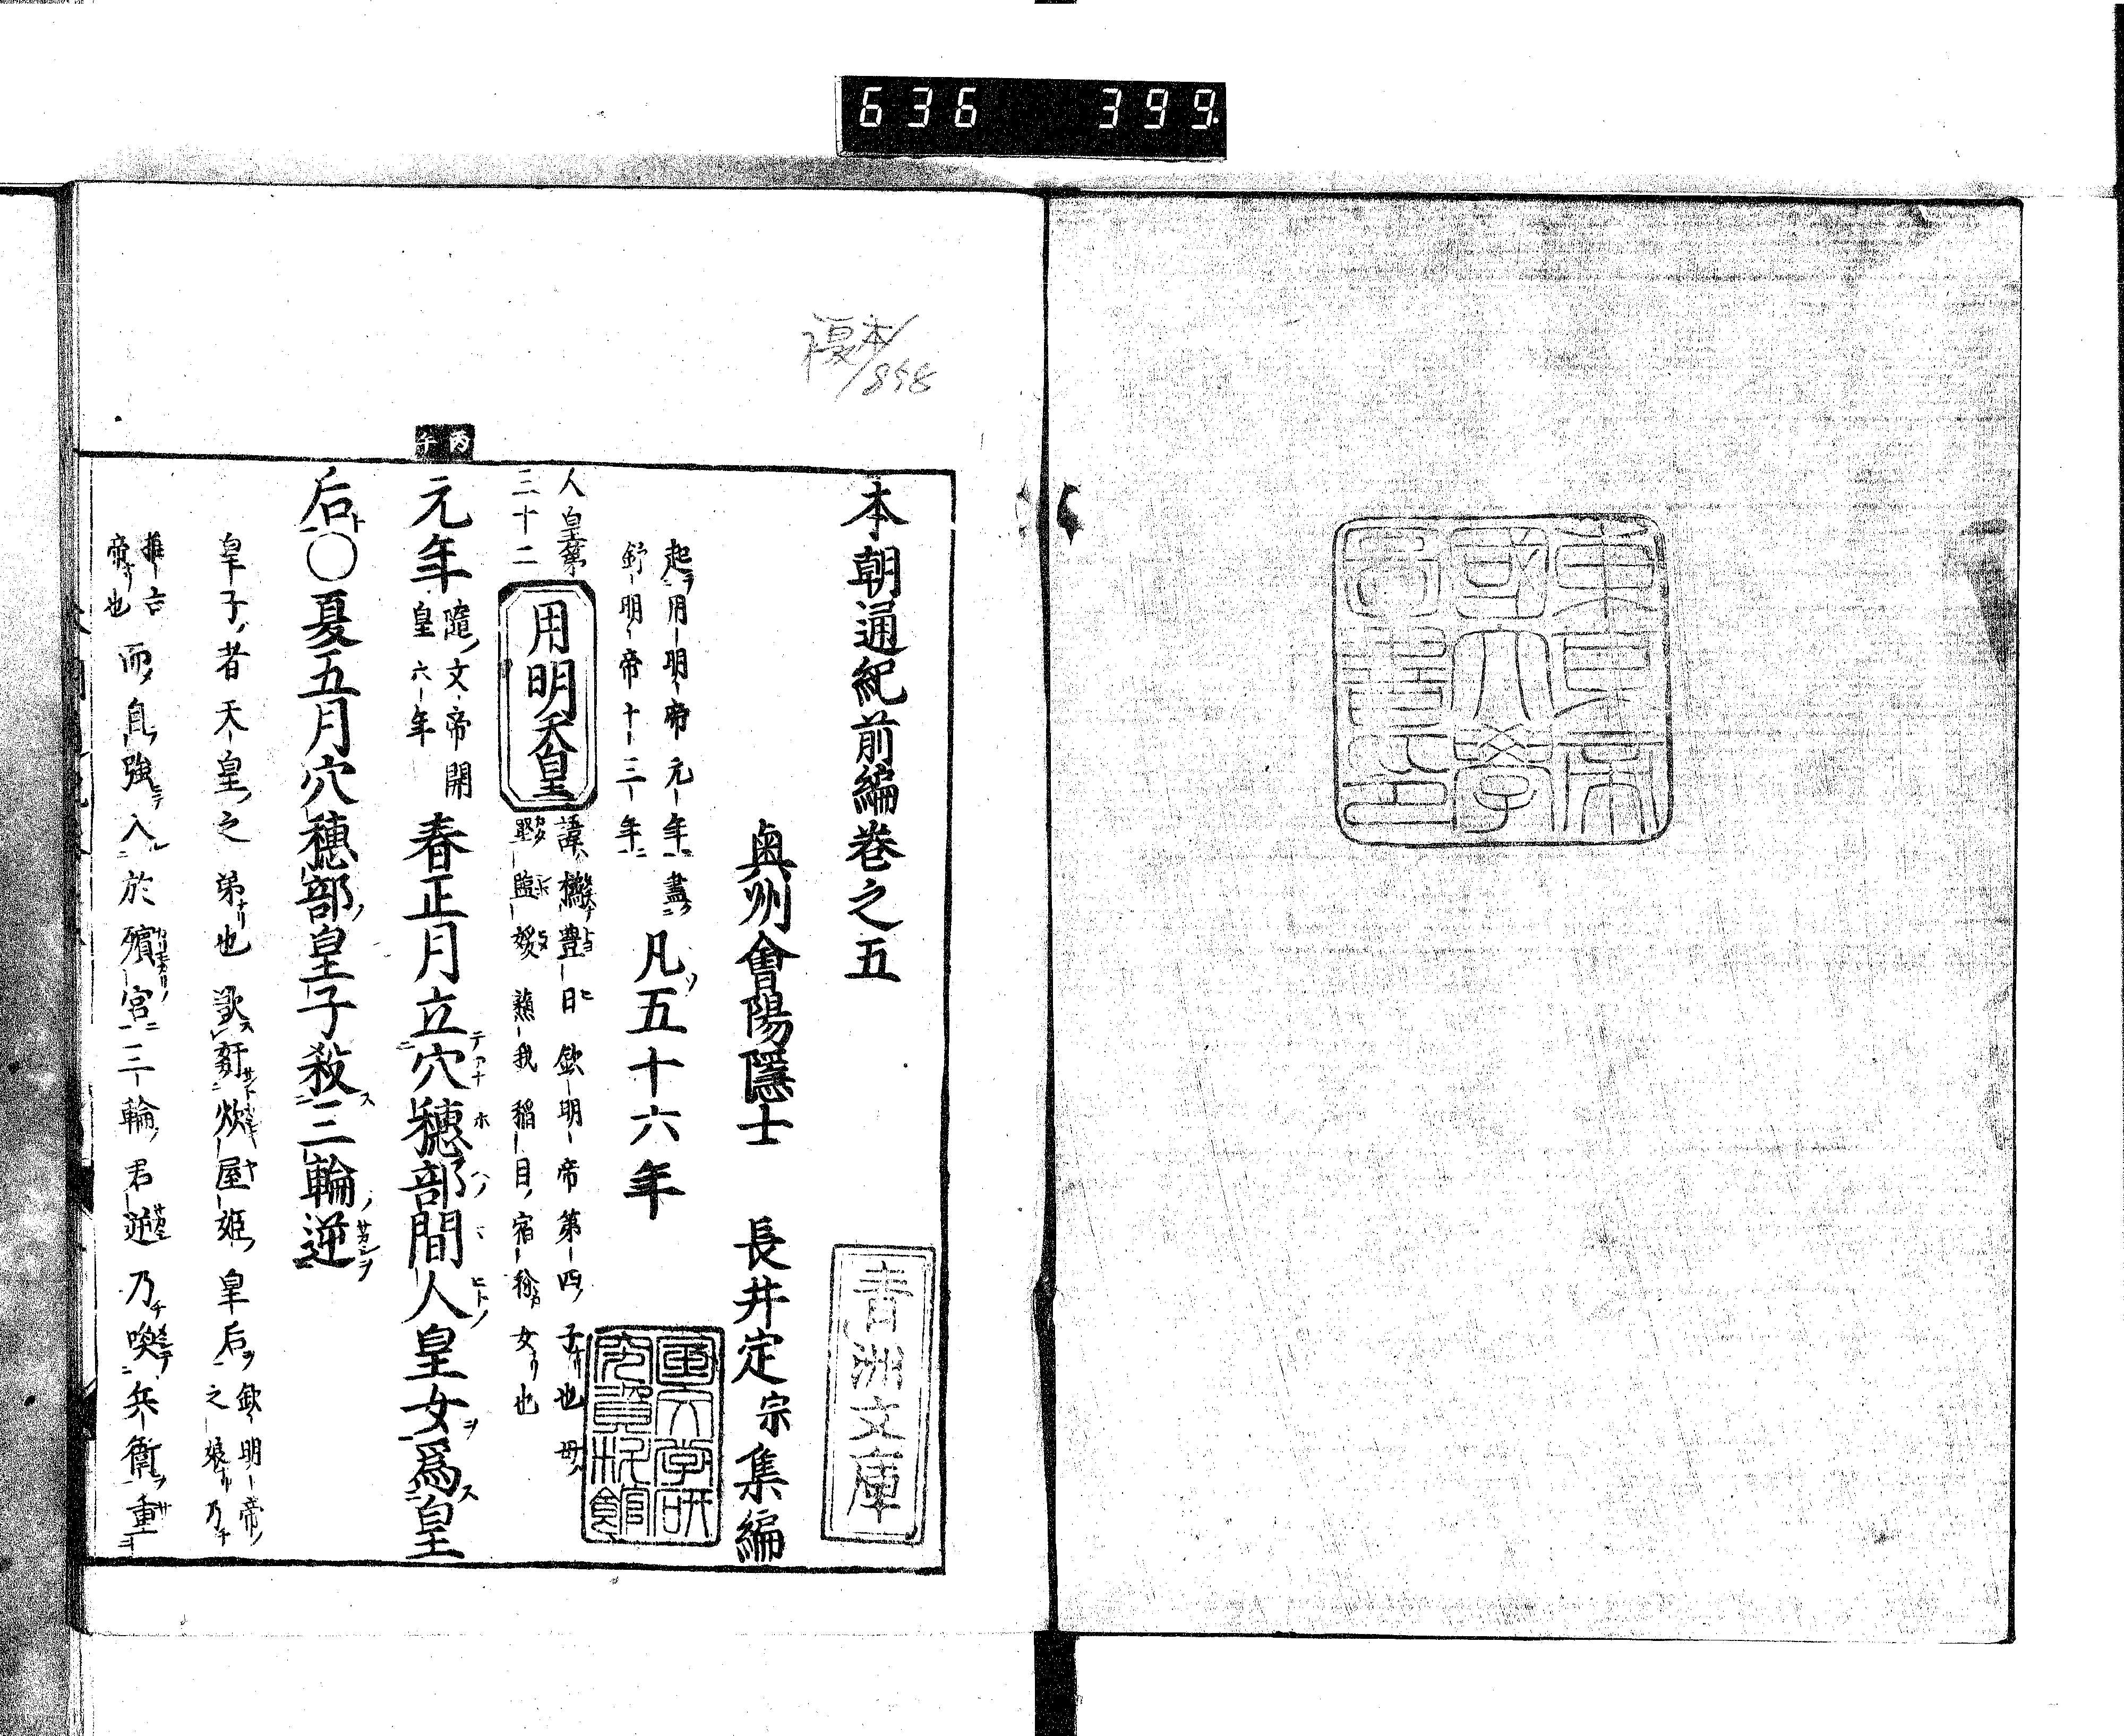 636 399
東京帝
國大學
圖書印
複本
本朝通紀前編巻之五
奥州會陽隱士 長井定宗集編
青洲文庫
起用明帝元年盡
舒明帝十三年
凡五十六年
國文学研
究資料館
人皇第
三十二
用明天皇
諱橘豊日欽明帝第四子也母
堅塩媛蘇我稲目宿祢女也
丙午
元年
隨文帝開
皇六年
春正月立穴穂部間人皇女爲皇
后〇夏五月穴穂部皇子殺三輪逆
皇子者天皇之弟也欲姧炊屋姫皇后
欽明帝
之娘乃
推古
帝也
而自強入於殯宮三輪君逆乃喚兵衛重